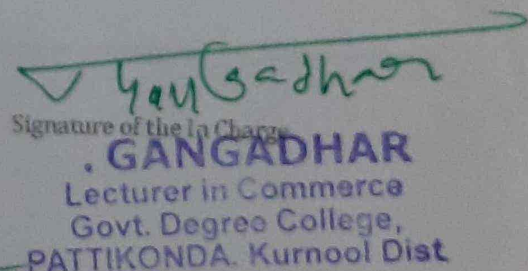 Gangadhar
Signature of the In Charge
. GANGADHAR
Lecturer in Commerce
Govt. Degree College,
PATTIKONDA. Kurnool Dist